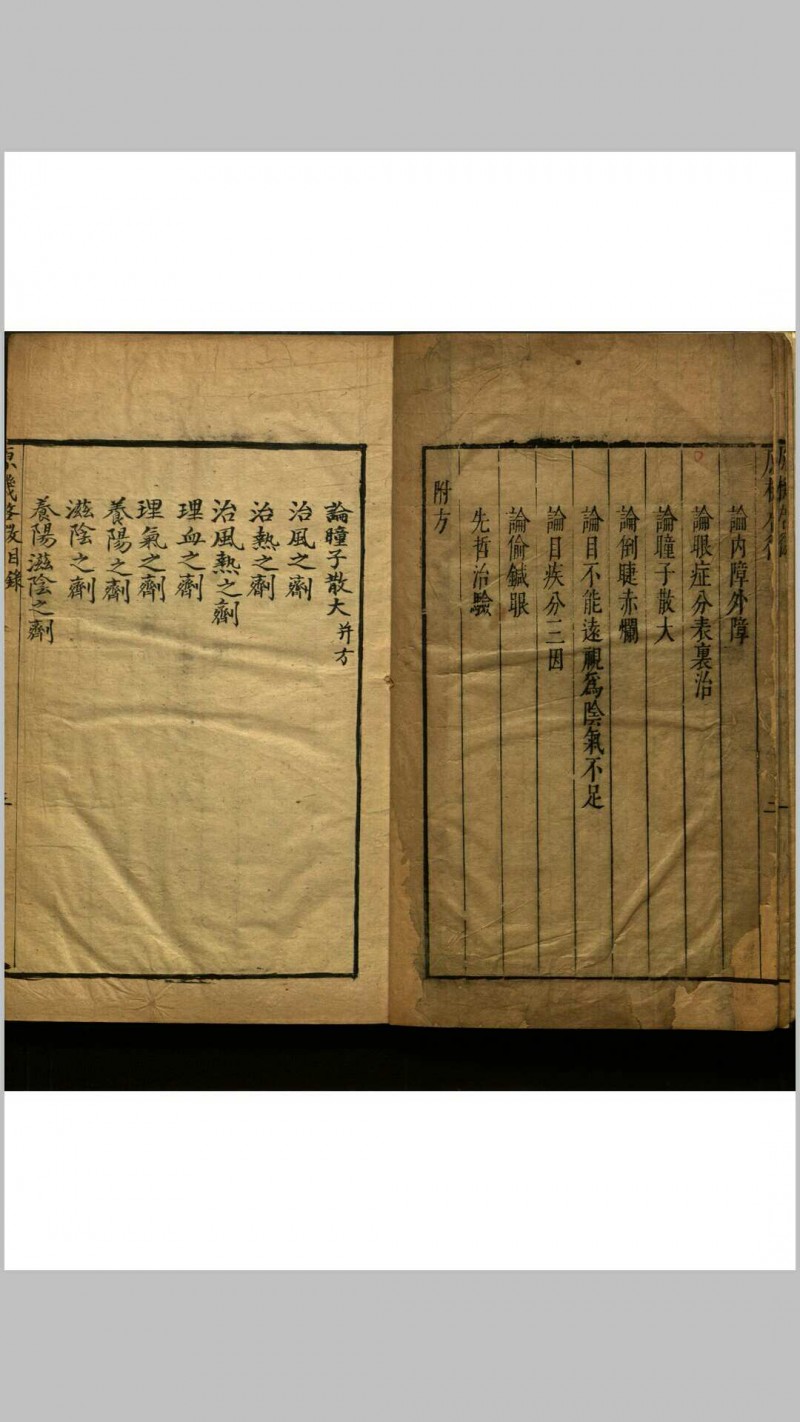 論內障外障
論眼症分表裏治
論瞳子散大
論倒睫赤爛
論目不能遠視爲陰氣不足
論目疾分三因
論偷鍼眼
先哲治驗
附方
論瞳子散大 幷方
治風之劑
治熱之劑
治風熱之劑
理血之劑
理氣之劑
養陽之劑
滋陰之劑
養陽滋陰之劑
目錄